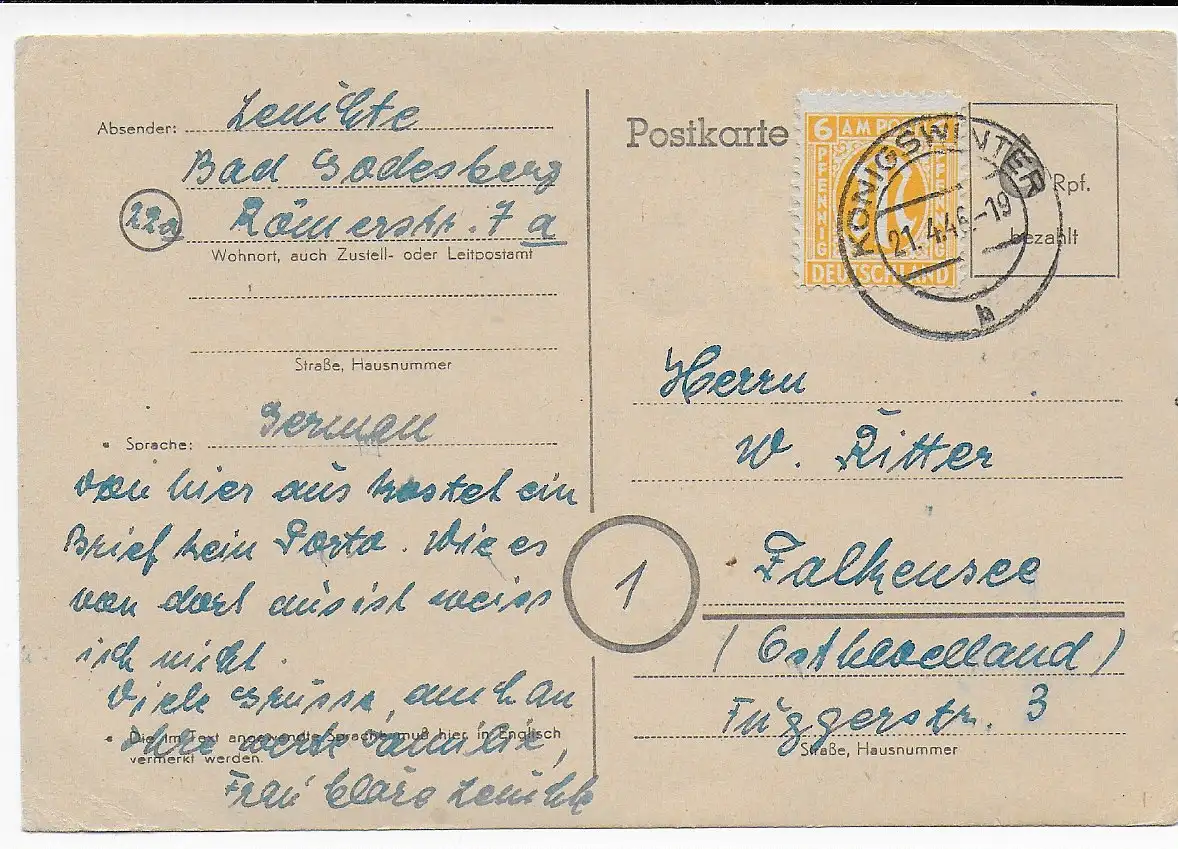 Absender: Lenichte
Bad Godesberg
22a Römerstr. 7a
Wohnort, auch Zustell- oder Leitpostamt
Straße, Hausnummer
• Sprache: German
von hier aus kostet ein
Brief kein Porto. Wie es
von dort aus ist weiss
ich nicht.
Viele Grüsse, auch an
Ihre werte Familie,
• Die im Text angewendte Sprache muß hier in Englisch
vermerkt werden.
Frau Clara
Postkarte
6 AM POST
PFENNIG PFENNIG
DEUTSCHLAND
KÖNIGSWINTER
21.4.46.-19
b
Rpf.
bezahlt
Herrn
W. Ritter
1
Falkensee
(Osthavelland)
Fuggerstr. 3
Straße, Hausnummer